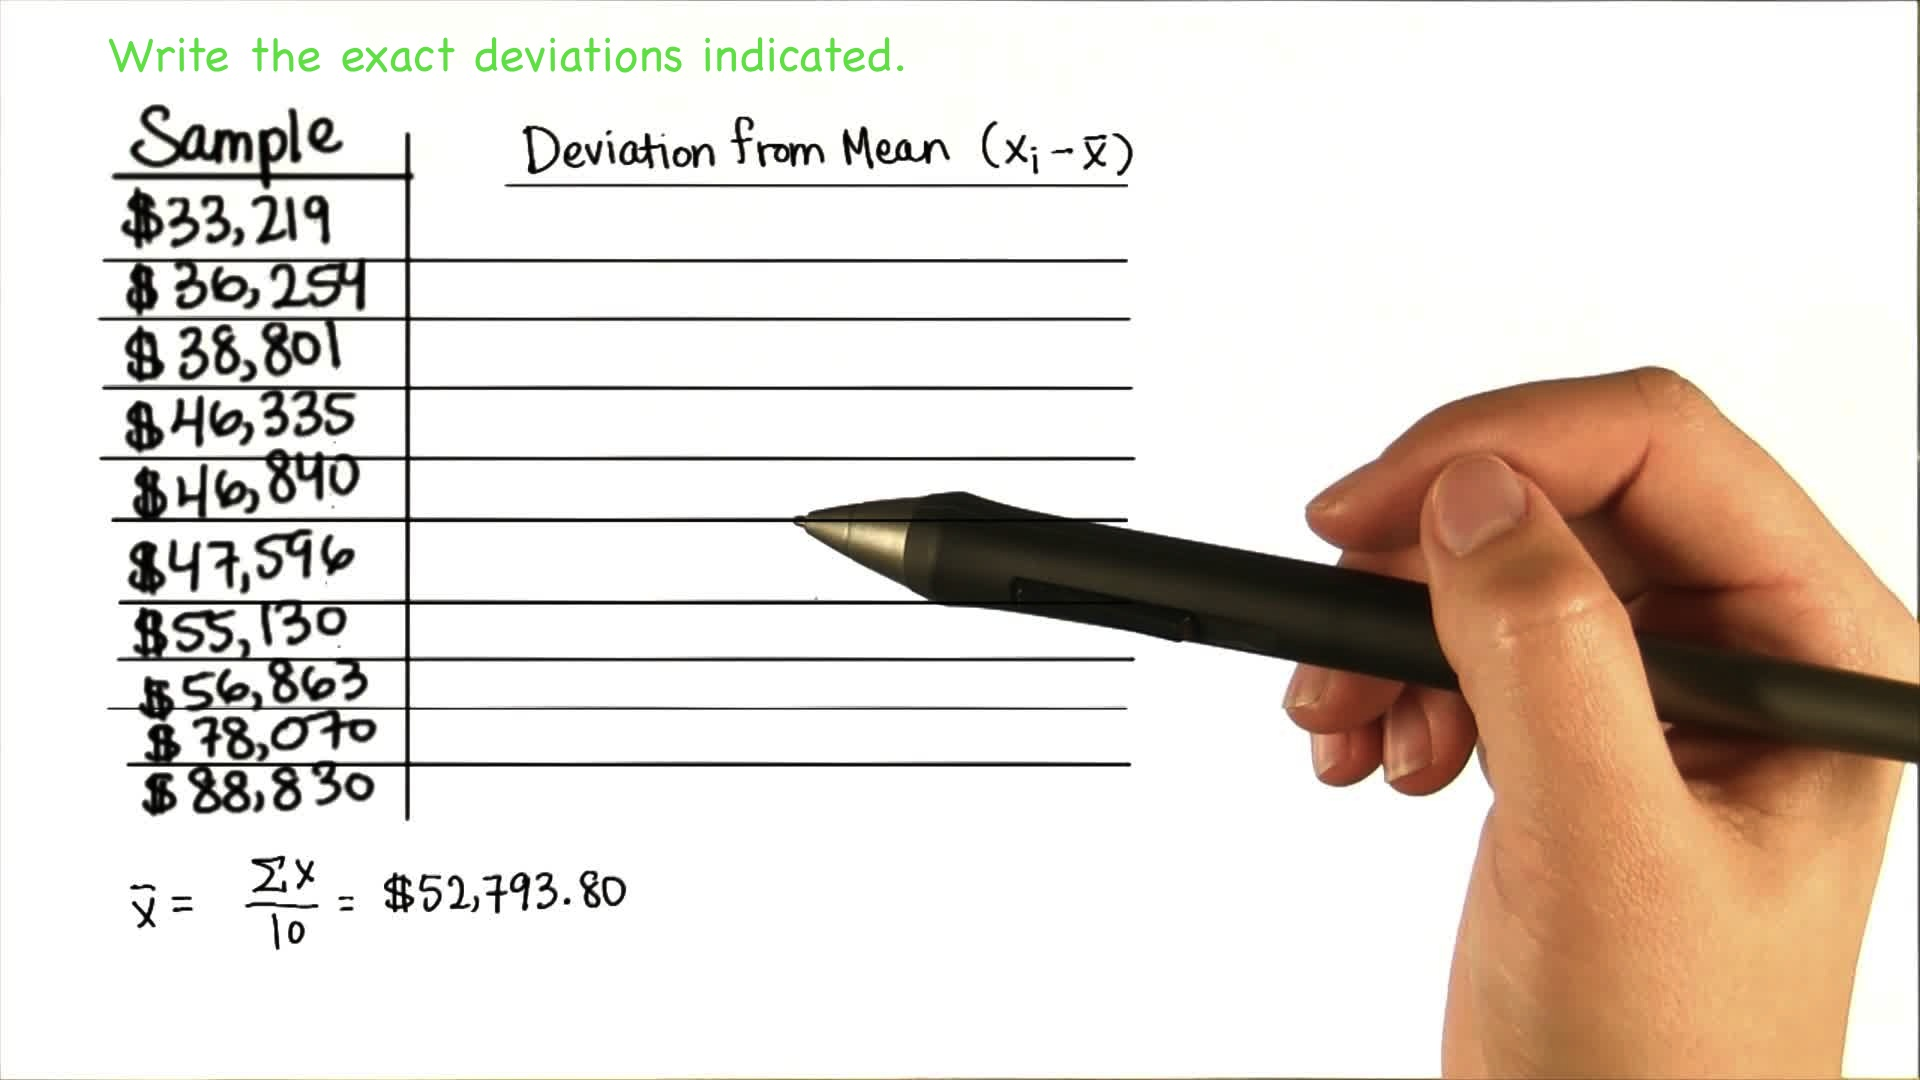 Write the exact deviations indicated.
Sample
Deviation from Mean (xᵢ - x̄)
$33,219
$36,254
$38,801
$46,335
$46,840
$47,596
$55,130
$56,863
$78,070
$88,830
x̄ = Σx/10 = $52,793.80